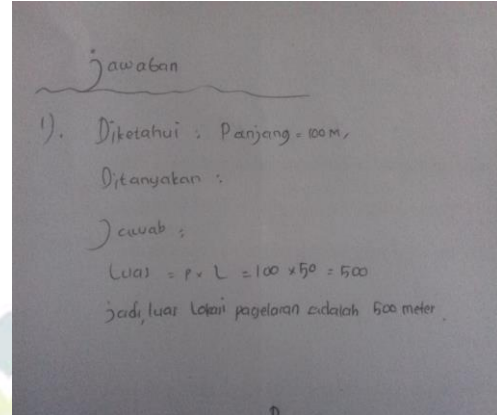 jawaban
1). Diketahui : Panjang = 100 M,
Ditanyakan :
Jawab :
Luas = P x L = 100 x 50 = 500
jadi, luas Lokasi pagelaran adalah 500 meter.